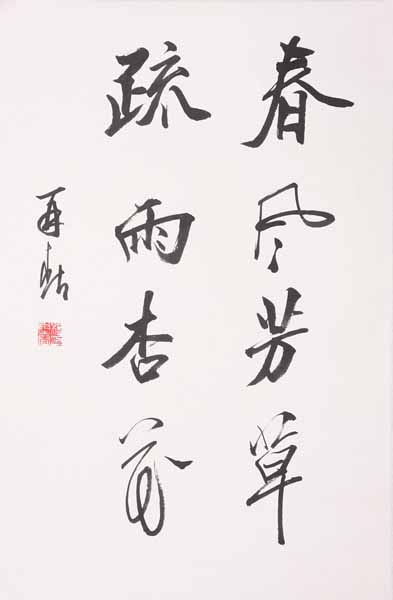 春风芳草
疏雨杏花
再喆